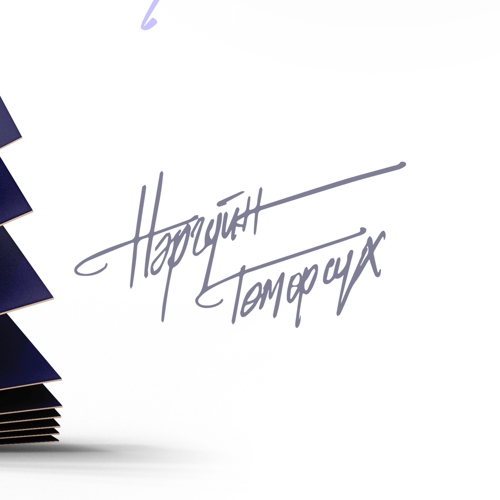 Нэргүйн
Төмөрсүх